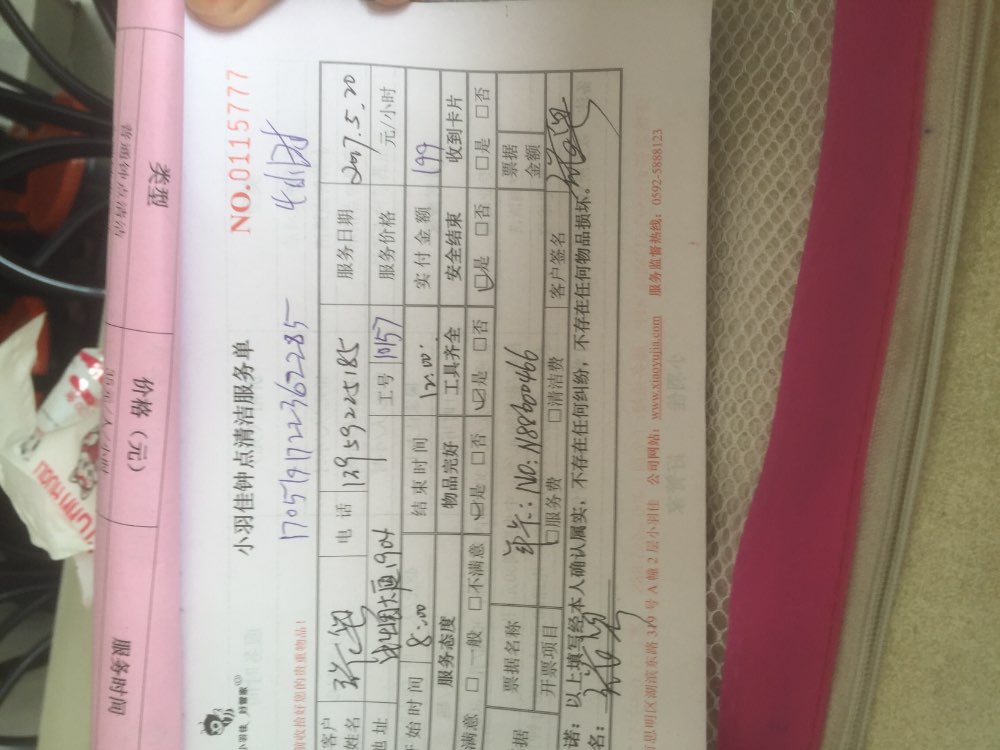 类型
价格（元）
服务时间
普通钟点清洁
小羽佳 好管家
小羽佳钟点清洁服务单
NO.0115777
收拾好您的贵重物品！
1705191722362285
4小时
客户
姓名
电话
12959225185
服务日期
2017.5.20
地址
1904
工号
1057
服务价格
元/小时
始时间
8:00
结束时间
12:00
实付金额
199
服务态度
物品完好
工具齐全
安全结束
收到卡片
满意 □一般 □不满意
☑是 □否
☑是 □否
☑是 □否
□是 □否
据
票据名称
年卡：NO:N88600466
票据
金额
开票项目
□服务费 □清洁费
客户签名
诺：以上填写经本人确认属实，不存在任何纠纷，不存在任何物品损坏。
名：
思明区湖滨东路319号A幢2层小羽佳 公司网站：www.xiaoyujia.com 服务监督热线：0592-5888123